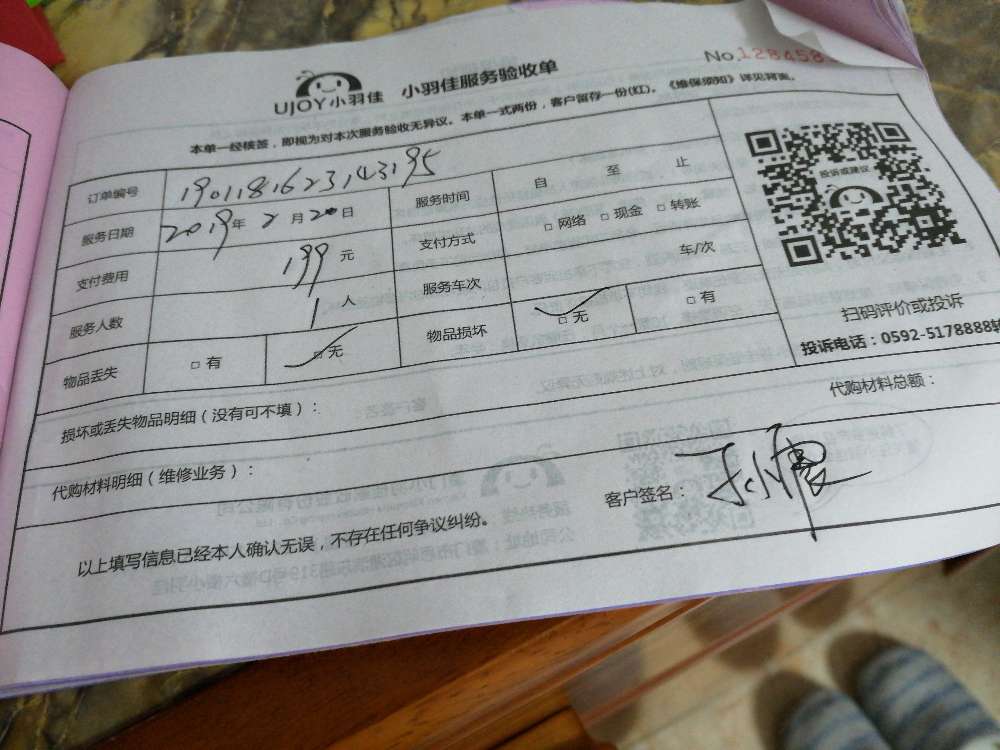 UJOY小羽佳 小羽佳服务验收单
No.128458
本单一经核签，即视为对本次服务验收无异议。本单一式两份，客户留存一份(红)。《维保须知》详见背面。
订单编号 1901181623143195 服务时间 自 至 止
服务日期 2019年2月20日 支付方式 □网络 □现金 □转账
支付费用 199元 服务车次 车/次
服务人数 1人 物品损坏 □无 □有
物品丢失 □有 □无
投诉或建议
扫码评价或投诉
投诉电话：0592-5178888转
损坏或丢失物品明细（没有可不填）：
代购材料总额：
代购材料明细（维修业务）：
客户签名：
以上填写信息已经本人确认无误，不存在任何争议纠纷。